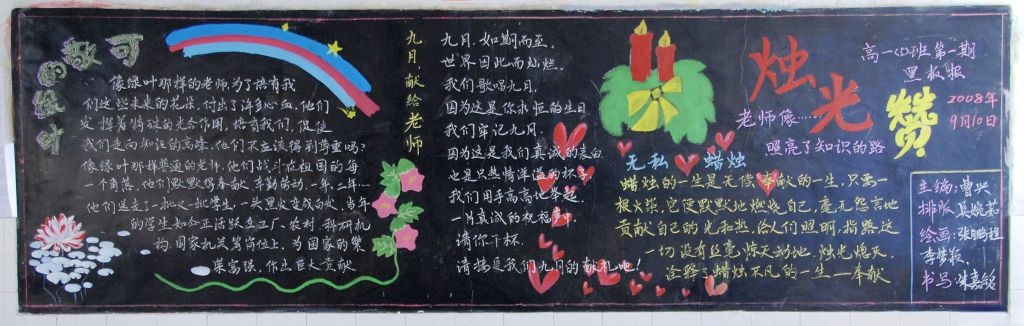 可敬的绿叶
像绿叶那样的老师,为了培育我
们这些未来的花朵,付出了许多心血,他们
发挥着特殊的光合作用,培育我们,促使
我们走向知识的高峰,他们不应该得到尊重吗?
像绿叶那样普通的老师,他们战斗在祖国的每
一个角落,他们默默得奉献,辛勤劳动,一年二年…
他们送走了一批又一批学生,一头黑发变成白发,当年
的学生如今正活跃在工厂、农村、科研机
构、国家机关等岗位上,为国家的繁
荣富强,作出巨大贡献
九月,献给老师
九月,如期而至,
世界因此而灿烂。
我们歌唱九月,
因为这是你永恒的生日
我们牢记九月,
因为这是我们真诚的表白
也是只热情洋溢的杯子
我们用手高高地举起
一片真诚的祝福声中
请你干杯,
请接受我们九月的献礼吧!
烛光赞
老师像……
照亮了知识的路
高一班第一期
黑板报
2008年
9月10日
无私 蜡烛
蜡烛的一生是无偿奉献的一生,只需一
根火柴,它便默默地燃烧自己,毫无怨言地
贡献自己的光和热,给人们照明,指路这
一切没有丝毫惊天动地,烛光熄灭,
诠释了蜡烛不凡的一生——奉献
主编:曹兴
排版:吴婉茹
绘画:张鹏程
李梦
书写:朱嘉铭